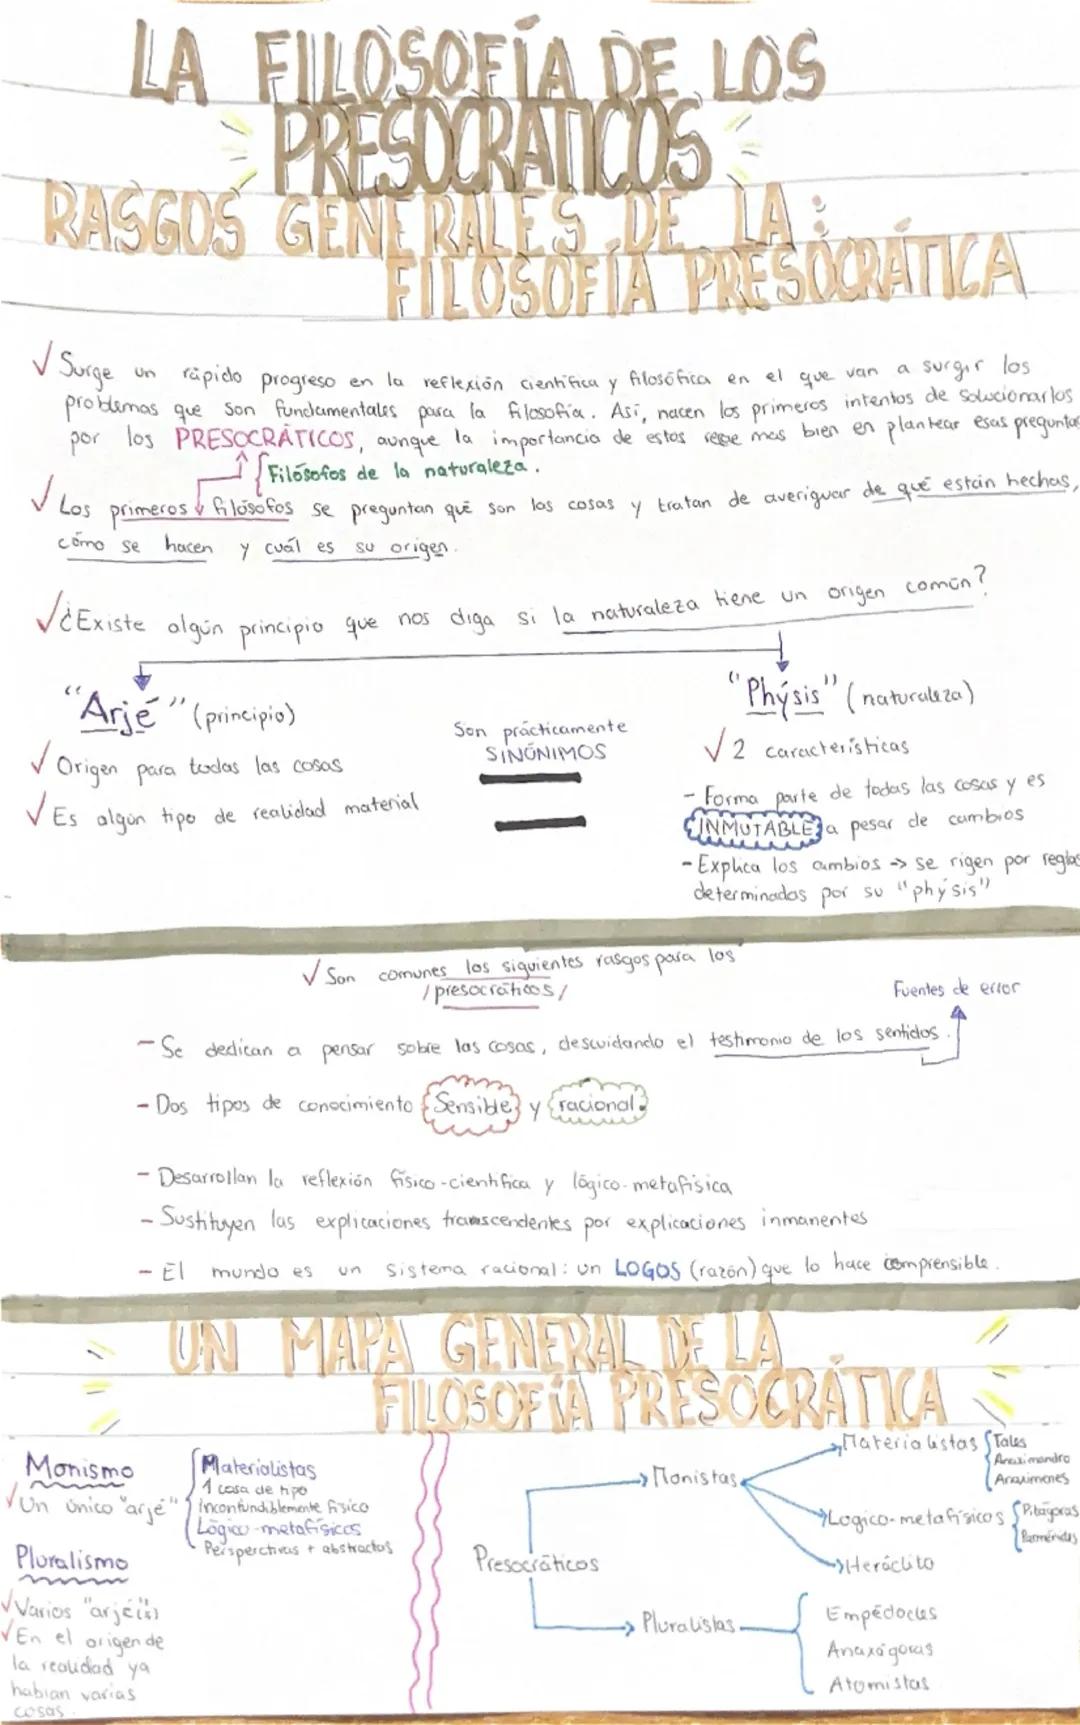 LA FILOSOFÍA DE LOS
PRESOCRÁTICOS
RASGOS GENERALES DE LA
FILOSOFÍA PRESOCRÁTICA
✓ Surge un rápido progreso en la reflexión científica y filosófica en el que van a surgir los
problemas que son fundamentales para la filosofía. Así, nacen los primeros intentos de solucionarlos
por los PRESOCRÁTICOS, aunque la importancia de estos mas bien en plantear esas preguntas
Filósofos de la naturaleza.
✓ Los primeros filósofos se preguntan qué son las cosas y tratan de averiguar de qué están hechas,
cómo se hacen y cuál es su origen.
✓ ¿Existe algún principio que nos diga si la naturaleza tiene un origen común?
"Arjé" (principio)
✓ Origen para todas las cosas
✓ Es algún tipo de realidad material
Son prácticamente
SINÓNIMOS
"Phýsis" (naturaleza)
✓ 2 características
- Forma parte de todas las cosas y es
INMUTABLE a pesar de cambios
- Explica los cambios -> se rigen por reglas
determinadas por su "physis"
✓ Son comunes los siguientes rasgos para los
/presocráticos/
Fuentes de error
- Se dedican a pensar sobre las cosas, descuidando el testimonio de los sentidos.
- Dos tipos de conocimiento Sensible y racional.
- Desarrollan la reflexión físico-científica y lógico-metafísica
- Sustituyen las explicaciones transcendentes por explicaciones inmanentes
- El mundo es un sistema racional: un LOGOS (razón) que lo hace comprensible.
UN MAPA GENERAL DE LA
FILOSOFÍA PRESOCRÁTICA
Monismo
✓ Un único "arjé"
Materialistas
1 cosa de tipo
inconfundiblemente físico
Lógico-metafísicos
Perspectivas + abstractas
Pluralismo
✓ Varios "arjé(s)
✓ En el origen de
la realidad ya
habían varias
cosas.
Presocráticos
Monistas
Materialistas
Tales
Anaximandro
Anaxímenes
Logico-metafísicos
Pitágoras
Parménides
Heráclito
Pluralistas
Empédocles
Anaxágoras
Atomistas